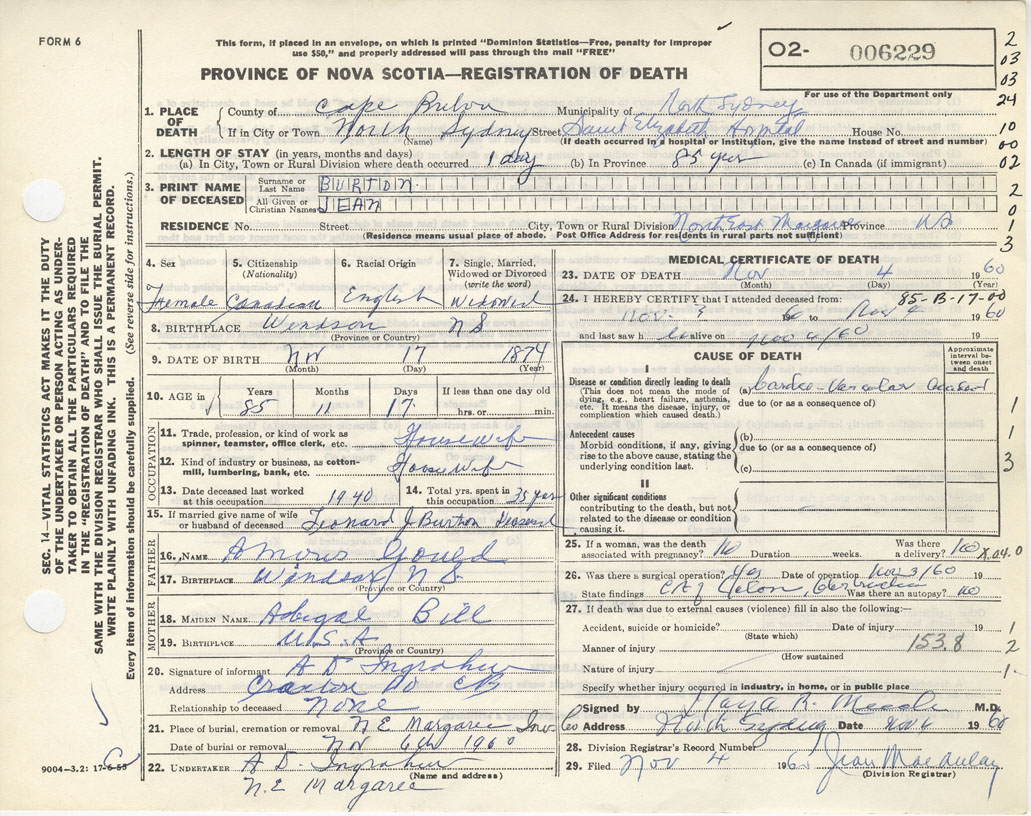 FORM 6
This form, if placed in an envelope, on which is printed "Dominion Statistics—Free, penalty for improper
use $50," and properly addressed will pass through the mail "FREE"
PROVINCE OF NOVA SCOTIA—REGISTRATION OF DEATH
O2- 006229
For use of the Department only
2
03
03
24
10
00
02
2
0
1
3
1. PLACE OF DEATH
County of Cape Breton Municipality of North Sydney
If in City or Town North Sydney Street Saint Elizabeth Hospital House No.
(Name) (If death occurred in a hospital or institution, give the name instead of street and number)
2. LENGTH OF STAY (in years, months and days)
(a) In City, Town or Rural Division where death occurred 1 day (b) In Province 85 year (c) In Canada (if immigrant)
3. PRINT NAME OF DECEASED
Surname or Last Name BURTON
All Given or Christian Names JEAN
RESIDENCE No. Street City, Town or Rural Division North East Margaree Province NS
(Residence means usual place of abode. Post Office Address for residents in rural parts not sufficient)
4. Sex Female
5. Citizenship (Nationality) Canadian
6. Racial Origin English
7. Single, Married, Widowed or Divorced (write the word) Widowed
8. BIRTHPLACE Windsor N S
(Province or Country)
9. DATE OF BIRTH Nov 17 1874
(Month) (Day) (Year)
10. AGE in Years 85 Months 11 Days 17 If less than one day hrs. or min.
OCCUPATION
11. Trade, profession, or kind of work as spinner, teamster, office clerk, etc. Housewife
12. Kind of industry or business, as cotton-mill, lumbering, bank, etc. Housewife
13. Date deceased last worked at this occupation 1940
14. Total yrs. spent in this occupation 35 year
15. If married give name of wife or husband of deceased Leonard J Burton Deceased
FATHER
16. NAME Amous Gould
17. BIRTHPLACE Windsor N S
(Province or Country)
MOTHER
18. MAIDEN NAME Abigal Bill
19. BIRTHPLACE U.S.A
(Province or Country)
20. Signature of informant A D Ingraham
Address CB
Relationship to deceased None
21. Place of burial, cremation or removal N E Margaree Inv Co
Date of burial or removal Nov 6th 1960
22. UNDERTAKER A D. Ingraham
(Name and address)
N.E Margaree
MEDICAL CERTIFICATE OF DEATH
23. DATE OF DEATH Nov 4 1960
(Month) (Day) (Year)
85-B-17-00
24. I HEREBY CERTIFY that I attended deceased from:
Nov. 60 to Nov 4 1960
and last saw h alive on Nov 4/60 19
CAUSE OF DEATH
Approximate interval between onset and death
I
Disease or condition directly leading to death
(This does not mean the mode of dying, e.g., heart failure, asthenia, etc. It means the disease, injury, or complication which caused death.)
(a) Cardio-Vascular Accident
due to (or as a consequence of)
Antecedent causes
Morbid conditions, if any, giving rise to the above cause, stating the underlying condition last.
(b)
due to (or as a consequence of)
(c)
II
Other significant conditions
contributing to the death, but not related to the disease or condition causing it.
1
1
3
25. If a woman, was the death associated with pregnancy? no Duration weeks. Was there a delivery? no
26. Was there a surgical operation? yes Date of operation Nov 3/60 19
State findings CA of Colon, Was there an autopsy? no
27. If death was due to external causes (violence) fill in also the following:—
Accident, suicide or homicide? Date of injury 19
(State which)
Manner of injury 153.8
(How sustained)
Nature of injury
1
2
1
Specify whether injury occurred in industry, in home, or in public place
Signed by M.D.
Address North Sydney Date Nov 4 1960
28. Division Registrar's Record Number
29. Filed Nov 4 1960 Jean MacAulay
(Division Registrar)
SEC. 14—VITAL STATISTICS ACT MAKES IT THE DUTY
OF THE UNDERTAKER OR PERSON ACTING AS UNDER-
TAKER TO OBTAIN ALL THE PARTICULARS REQUIRED
IN THE "REGISTRATION OF DEATH" AND TO FILE THE
SAME WITH THE DIVISION REGISTRAR WHO SHALL ISSUE THE BURIAL PERMIT.
WRITE PLAINLY WITH UNFADING INK. THIS IS A PERMANENT RECORD.
Every item of information should be carefully supplied. (See reverse side for instructions.)
9004—3.2: 17-6-53